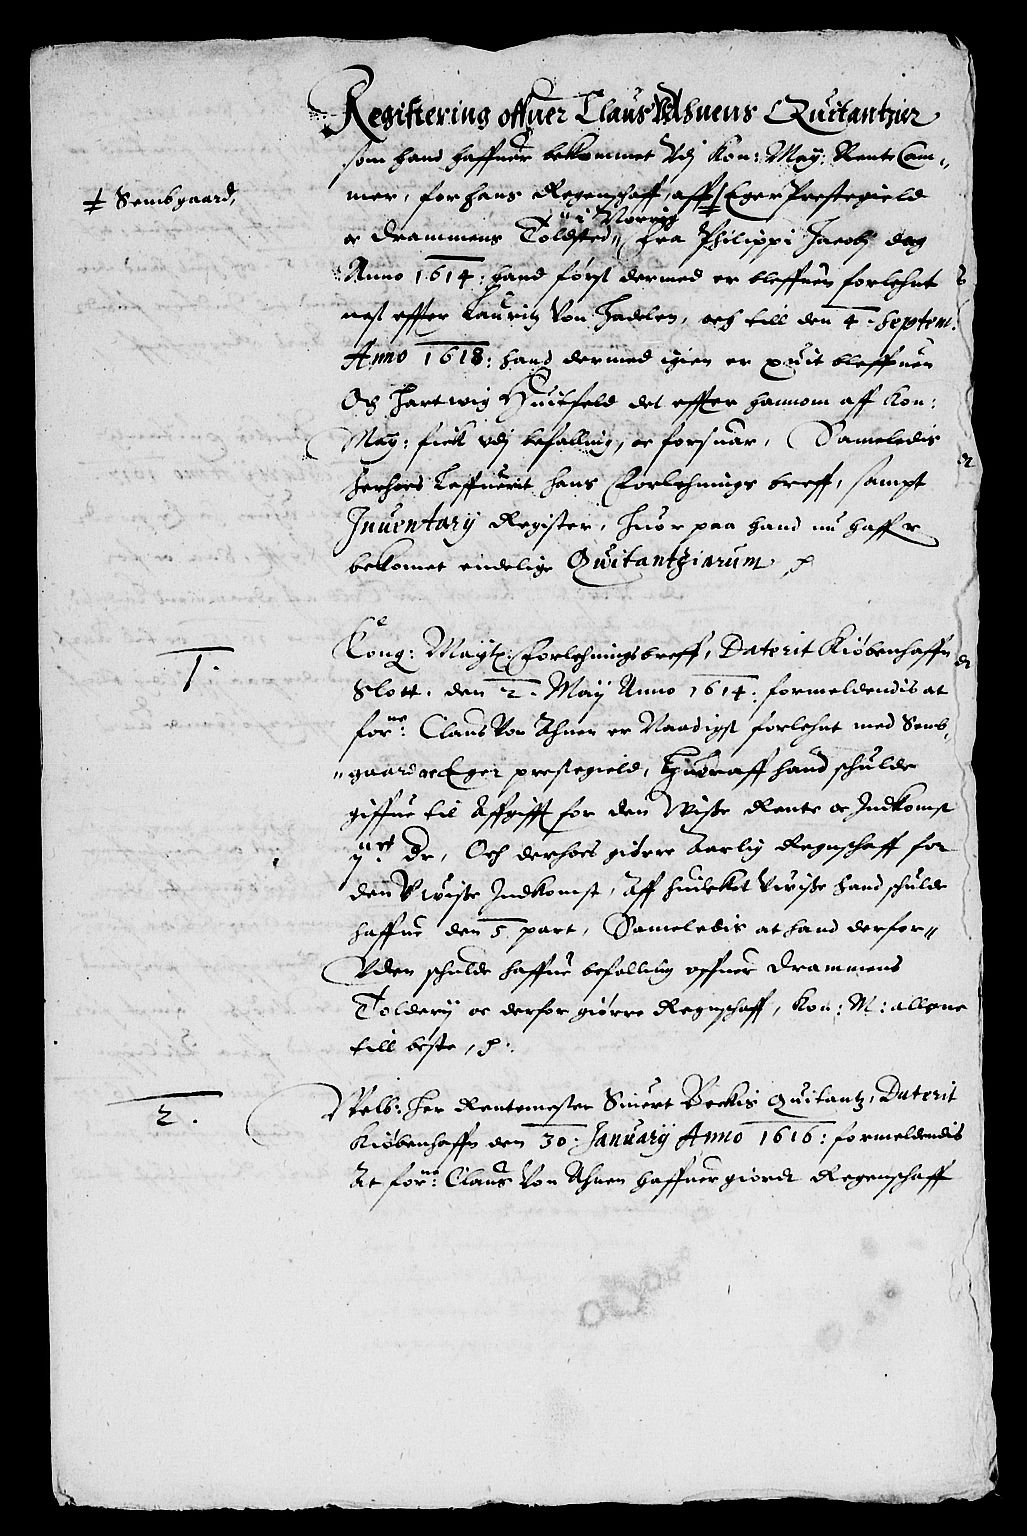 Registering offuer Claus Von Ahnens Quitantzier
som hand haffuer bekommet Udj Kon: May: Rente Cam¬
mer, for hans Regenschaff, aff ‡ Eger Prestegield
‡ Sembgaard,
oc Drammens Toldsted i Norrig, fra Philippi Jacobj dag
Anno 1614: hand først dermed er bleffuen forlehnt
nest effter Lauritz Von Hadelen, och till den 4. Septem:
Anno 1618: hand dermed igien er quit bleffuen
Och Hartwig Huitfeld det effter hannom aff Kon:
May: fick udj befalling, oc forsuar, Sameledis
herhoes Leffuerit hans Forlehnings breff, sampt
Inuentarij Register, huor paa hand nu haffr
bekomet endelige Quitantziarum
1.
Kong: Maytz: Forlehningsbreff, Daterit Kiøbenhaffns
Slott, den 2. Maij Anno 1614: formeldendis at
forne: Claus Von Ahnen er Naadigst forlehnt med Semb¬
gaard oc Eger prestegield, Huoraff hand schulde
giffue til Affgifft for den Wisse Rente oc Indkomst
Dr, Och derhoes giørre Aarlig Regnschaff for
den Uwisse Indkomst, Aff huilket Uwisse hand schulde
haffue den 5. part, Sameledis at hand derfor¬
Uden schulde haffue befalling offuer Drammens
Tolderij oc derfor giørre Regnschaff, Kon: M: allene
till beste,
2.
Welb: Her Rentemester Siuert Beckis Quitantz, Daterit
Kiøbenhaffn den 30. Januarij Anno 1616: formeldendis
At forne: Claus Von Ahnen haffuer giordt Regenschaff